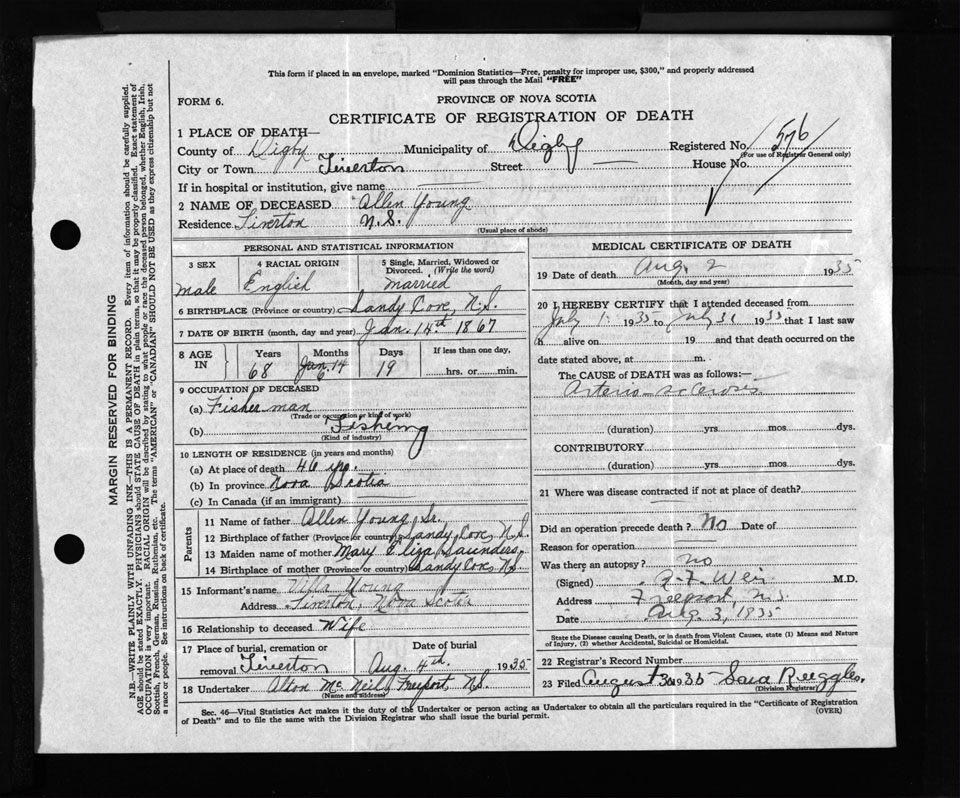 This form if placed in an envelope, marked "Dominion Statistics—Free, penalty for improper use, $300," and properly addressed
will pass through the Mail "FREE"
FORM 6.
PROVINCE OF NOVA SCOTIA
CERTIFICATE OF REGISTRATION OF DEATH
1 PLACE OF DEATH—
County of Digby Municipality of Digby Registered No. 576
(For use of Registrar General only)
City or Town Tiverton Street — House No.
If in hospital or institution, give name
2 NAME OF DECEASED Allen Young
Residence Tiverton N.S.
(Usual place of abode)
PERSONAL AND STATISTICAL INFORMATION
3 SEX 4 RACIAL ORIGIN 5 Single, Married, Widowed or
Divorced. (Write the word)
male English married
6 BIRTHPLACE (Province or country) Sandy Cove, N.S.
7 DATE OF BIRTH (month, day and year) Jan. 14th 1867
8 AGE IN Years Months Days If less than one day,
68 Jan. 14 6 19 hrs. or min.
9 OCCUPATION OF DECEASED
(a) Fisherman
(Trade or occupation or kind of work)
(b) Fishing
(Kind of industry)
10 LENGTH OF RESIDENCE (in years and months)
(a) At place of death 46 yrs.
(b) In province Nova Scotia
(c) In Canada (if an immigrant)
Parents
11 Name of father Allen Young, Sr.
12 Birthplace of father (Province or country) Sandy Cove, N.S.
13 Maiden name of mother Mary Eliza Saunders,
14 Birthplace of mother (Province or country) Sandy Cove, N.S.
15 Informant's name Villa Young
Address Tiverton, Nova Scotia
16 Relationship to deceased Wife
17 Place of burial, cremation or Date of burial
removal Tiverton Aug. 4th. 1935
18 Undertaker Alton McNeil, Freeport, N.S.
(Name and address)
MEDICAL CERTIFICATE OF DEATH
19 Date of death Aug. 2 1935
(Month, day and year)
20 I HEREBY CERTIFY that I attended deceased from
July 1 1935 to July 31 1935 that I last saw
h alive on 19 and that death occurred on the
date stated above, at m.
The CAUSE of DEATH was as follows:—
Arterio-sclerosis
(duration) yrs mos. dys.
CONTRIBUTORY
(duration) yrs. mos. dys.
21 Where was disease contracted if not at place of death?
Did an operation precede death? No Date of
Reason for operation
Was there an autopsy? no
(Signed) F. Weir M.D.
Address Freeport, N.S.
Date Aug. 3, 1935
State the Disease causing Death, or in death from Violent Causes, state (1) Means and Nature
of Injury, (2) whether Accidental, Suicidal or Homicidal.
22 Registrar's Record Number
23 Filed August 3 1935 Sara Ruggles.
(Division Registrar)
Sec. 46—Vital Statistics Act makes it the duty of the Undertaker or person acting as Undertaker to obtain all the particulars required in the "Certificate of Registration
of Death" and to file the same with the Division Registrar who shall issue the burial permit. (OVER)
MARGIN RESERVED FOR BINDING
N.B.—WRITE PLAINLY WITH UNFADING INK—THIS IS A PERMANENT RECORD. Every item of information should be carefully supplied.
AGE should be stated EXACTLY. PHYSICIANS should STATE CAUSE OF DEATH in plain terms, so that it may be properly classified. Exact statement of
OCCUPATION is very important. RACIAL ORIGIN will be described by stating to what people or race this deceased person belonged, whether English, Irish,
Scottish, French, German, Russian, Ruthenian, etc. The terms "AMERICAN" or "CANADIAN" SHOULD NOT BE USED as they express citizenship but not
a race or people. See instructions on back of certificate.